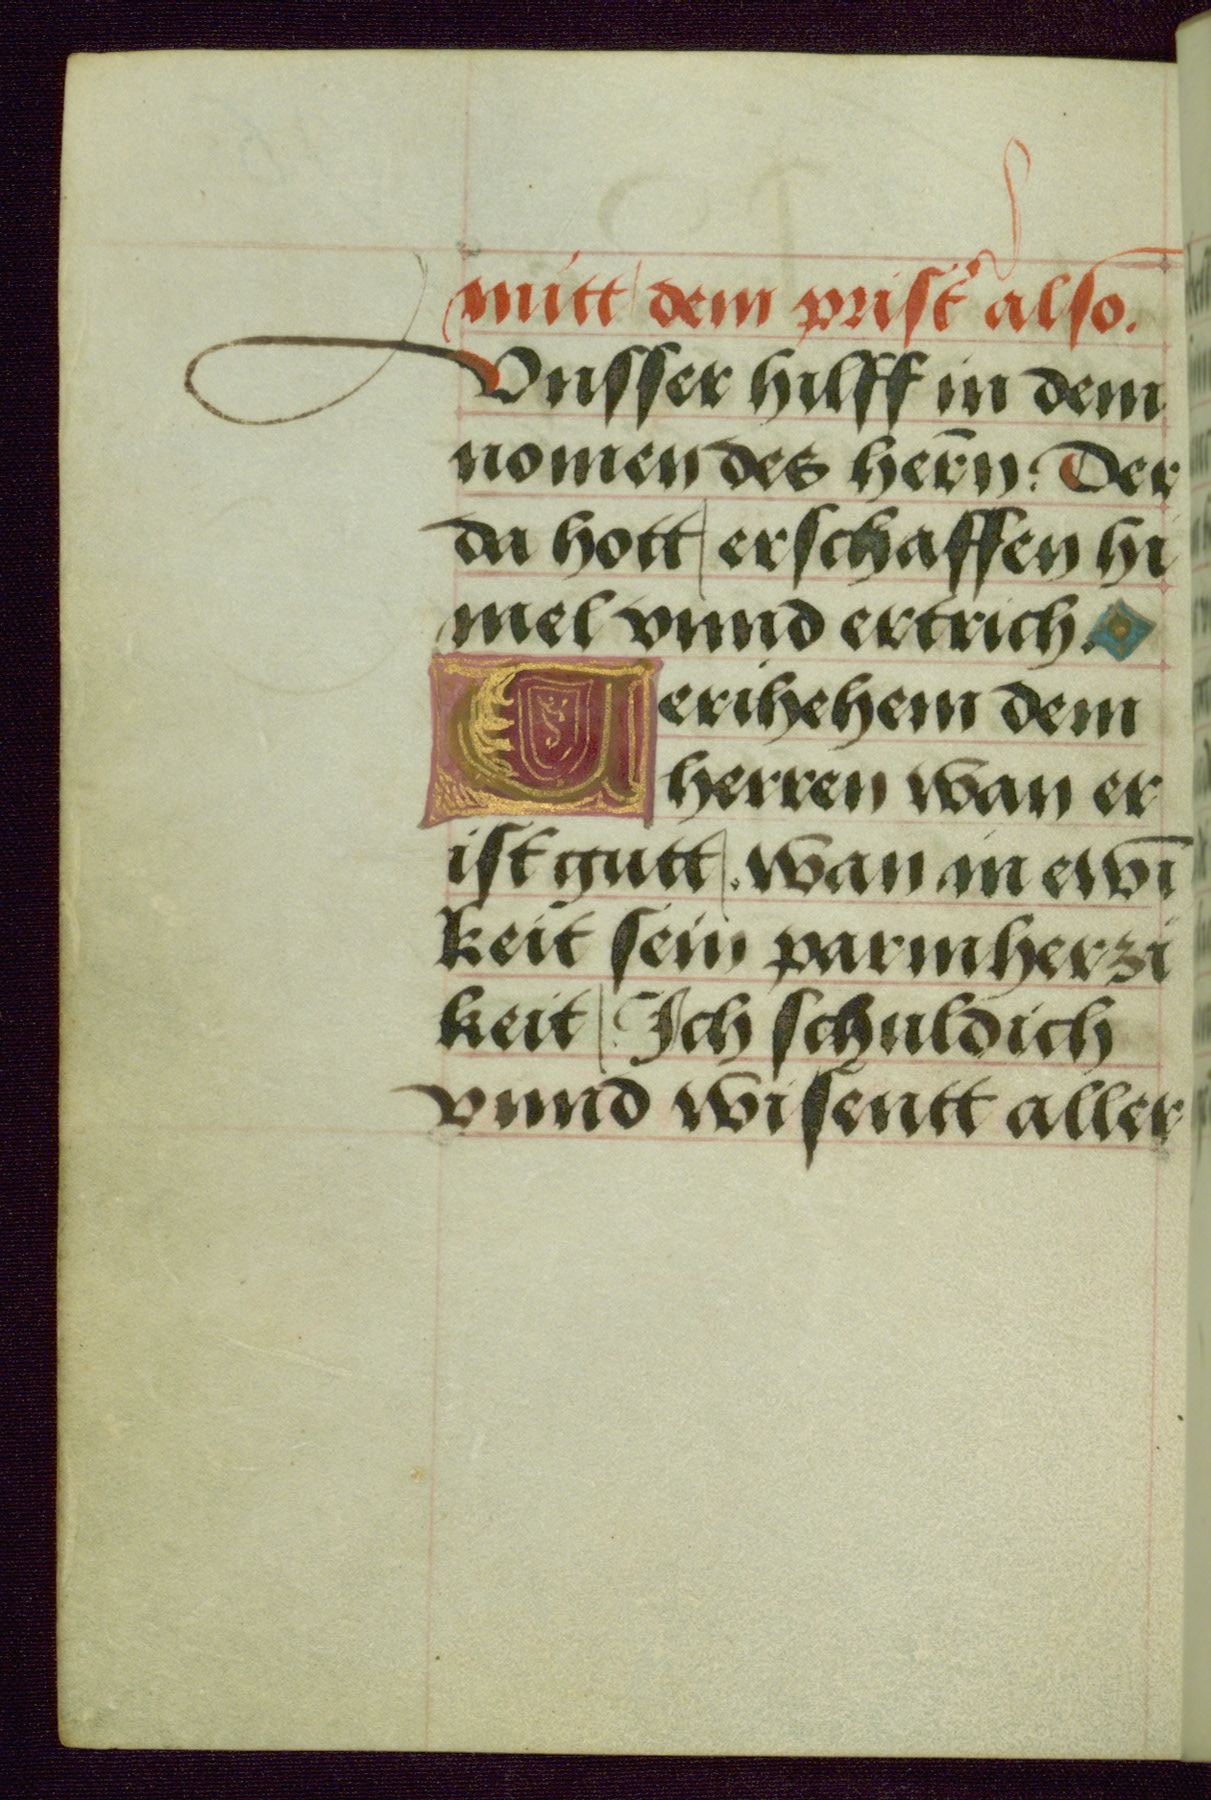 mitt dem prist̉ also.
Vnsser hilff in dem
nomen des her̄n: Der
da hott erschaffen hi
mel vnnd ertrich.
Verihehem dem
herren wan er
ist gutt. wan in ewi̅
keit sein parmherzi
keit Ich schuldich
vnnd wisentt aller